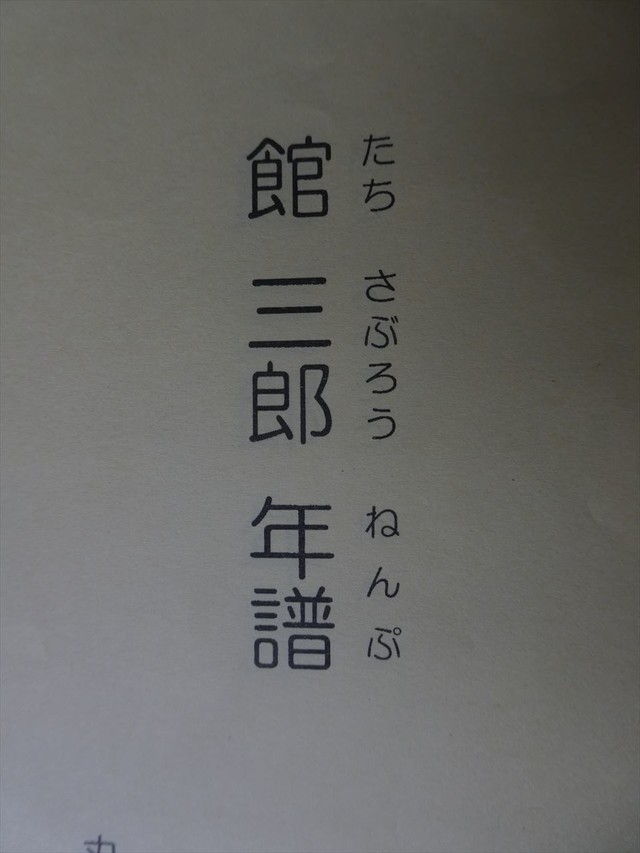 館 三郎 年譜
たち さぶろう ねんぷ